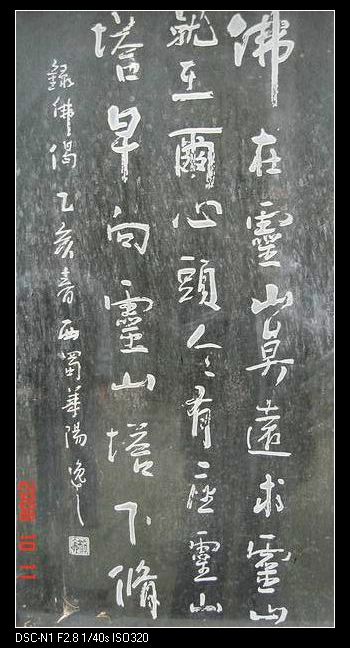 佛在靈山莫遠求靈山
就至爾心頭人人有座靈山
塔早向靈山塔下脩
錄佛偈乙亥春西蜀華陽逸之
10.11
DSC-N1 F2.8 1/40s ISO320